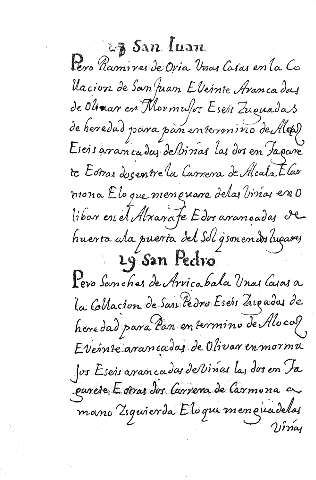 27 San Iuan
Pero Ramires de Oria Unas Casas en la Co
llacion de San Juan E Veinte Arancadas
de Olivar en Mormujos E seis Zuguadas
de heredad para pan en termino de Aloçaz
E seis arancadas de Viñas las dos en Tagare
te E otras dos entre la Carrera de Alcala. E Car
mona E lo que menguare de las Viñas en O
libar en el Alxarafe E dos arancadas de
huerta a la puerta del Sol q son en dos lugares
29 San Pedro
Pero Sanches de Arricabala Unas Casas a
la Collacion de San Pedro E seis Zugadas de
heredad para Pan en termino de Alocaz
E veinte arancadas de Olivar en mormu
jos E seis arancadas de Viñas las dos en Ta
garete E otras dos Carrera de Carmona a
mano Izquierda E lo que mengua de las
Viñas